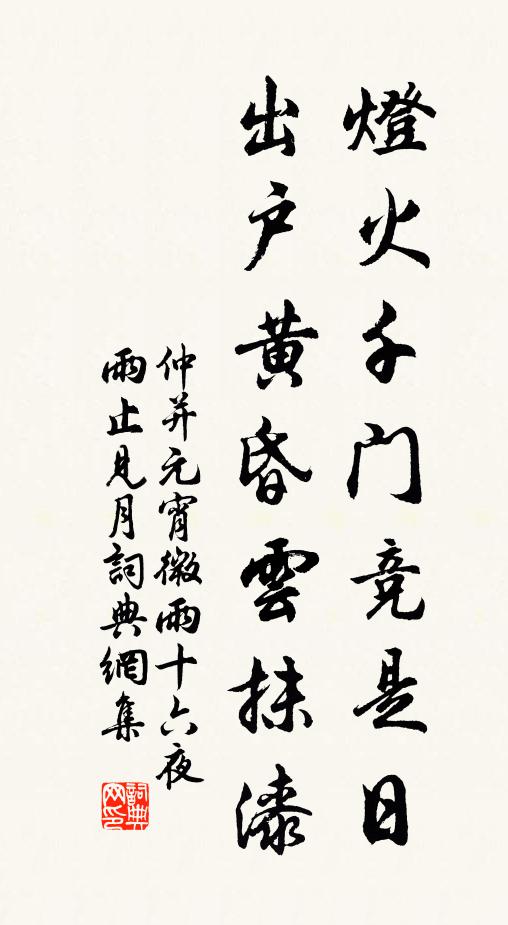 燈火千門竞是日
出户黄昏雲抹漆
仲并元宵微雨十六夜
雨止見月詞典網集
詞典
网印